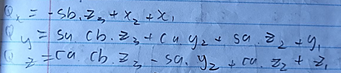 Qx = -sb.z₃ + x₂ + x₁
Qy = sa cb.z₃ + ca y₂ + sa.z₂ + y₁
Qz = ca cb.z₃ - sa.y₂ + ca.z₂ + z₁